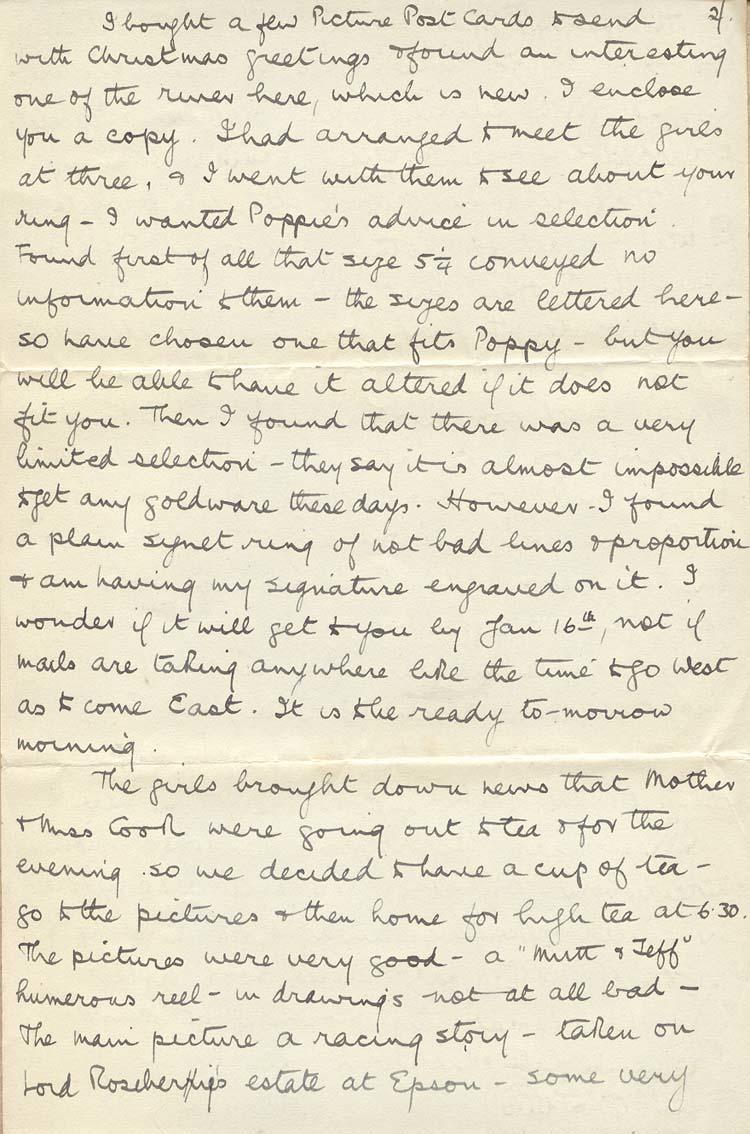 2/.
I bought a few Picture Post Cards to send
with Christmas greetings & found an interesting
one of the river here, which is new. I enclose
you a copy. I had arranged to meet the girls
at three, & I went with them to see about your
ring - I wanted Poppie's advice in selection.
Found first of all that size 5¼ conveyed no
information to them - the sizes are lettered here -
so have chosen one that fits Poppy - but you
will be able to have it altered if it does not
fit you. Then I found that there was a very
limited selection - they say it is almost impossible
to get any goldware these days. However - I found
a plain signet ring of not bad lines & proportion
& am having my signature engraved on it. I
wonder if it will get to you by Jan 16th, not if
mails are taking anywhere like the time to go West
as to come East. It is to be ready to-morrow
morning.
The girls brought down news that Mother
& Miss Cook were going out to tea & for the
evening. so we decided to have a cup of tea -
go to the pictures & then home for high tea at 6.30.
The pictures were very good - a "Mutt & Jeff"
humerous reel - in drawings not at all bad -
The main picture a racing story - taken on
Lord Rosebery's estate at Epson - some very